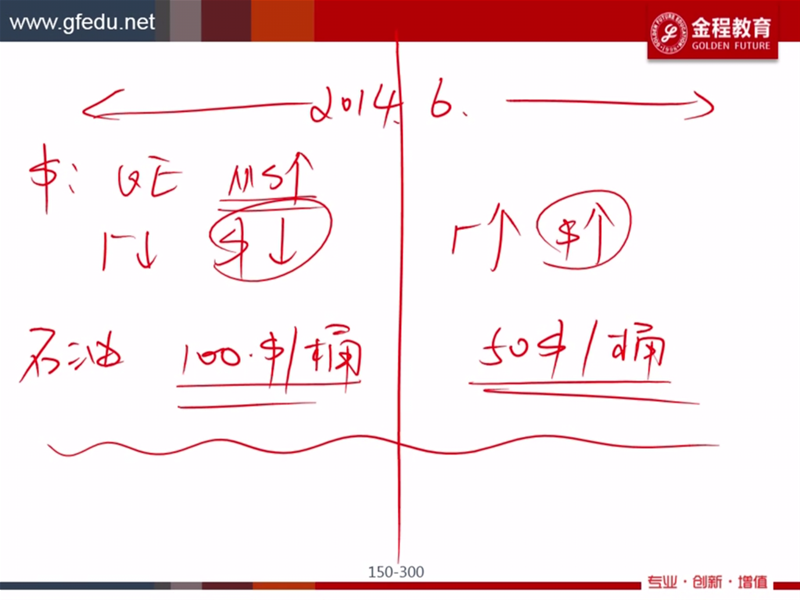 www.gfedu.net
金程教育
GOLDEN FUTURE
2014. 6.
$: QE MS↑
r↓ $↓ r↑ $↑
石油 100.$/桶 50$/桶
150-300
专业·创新·增值